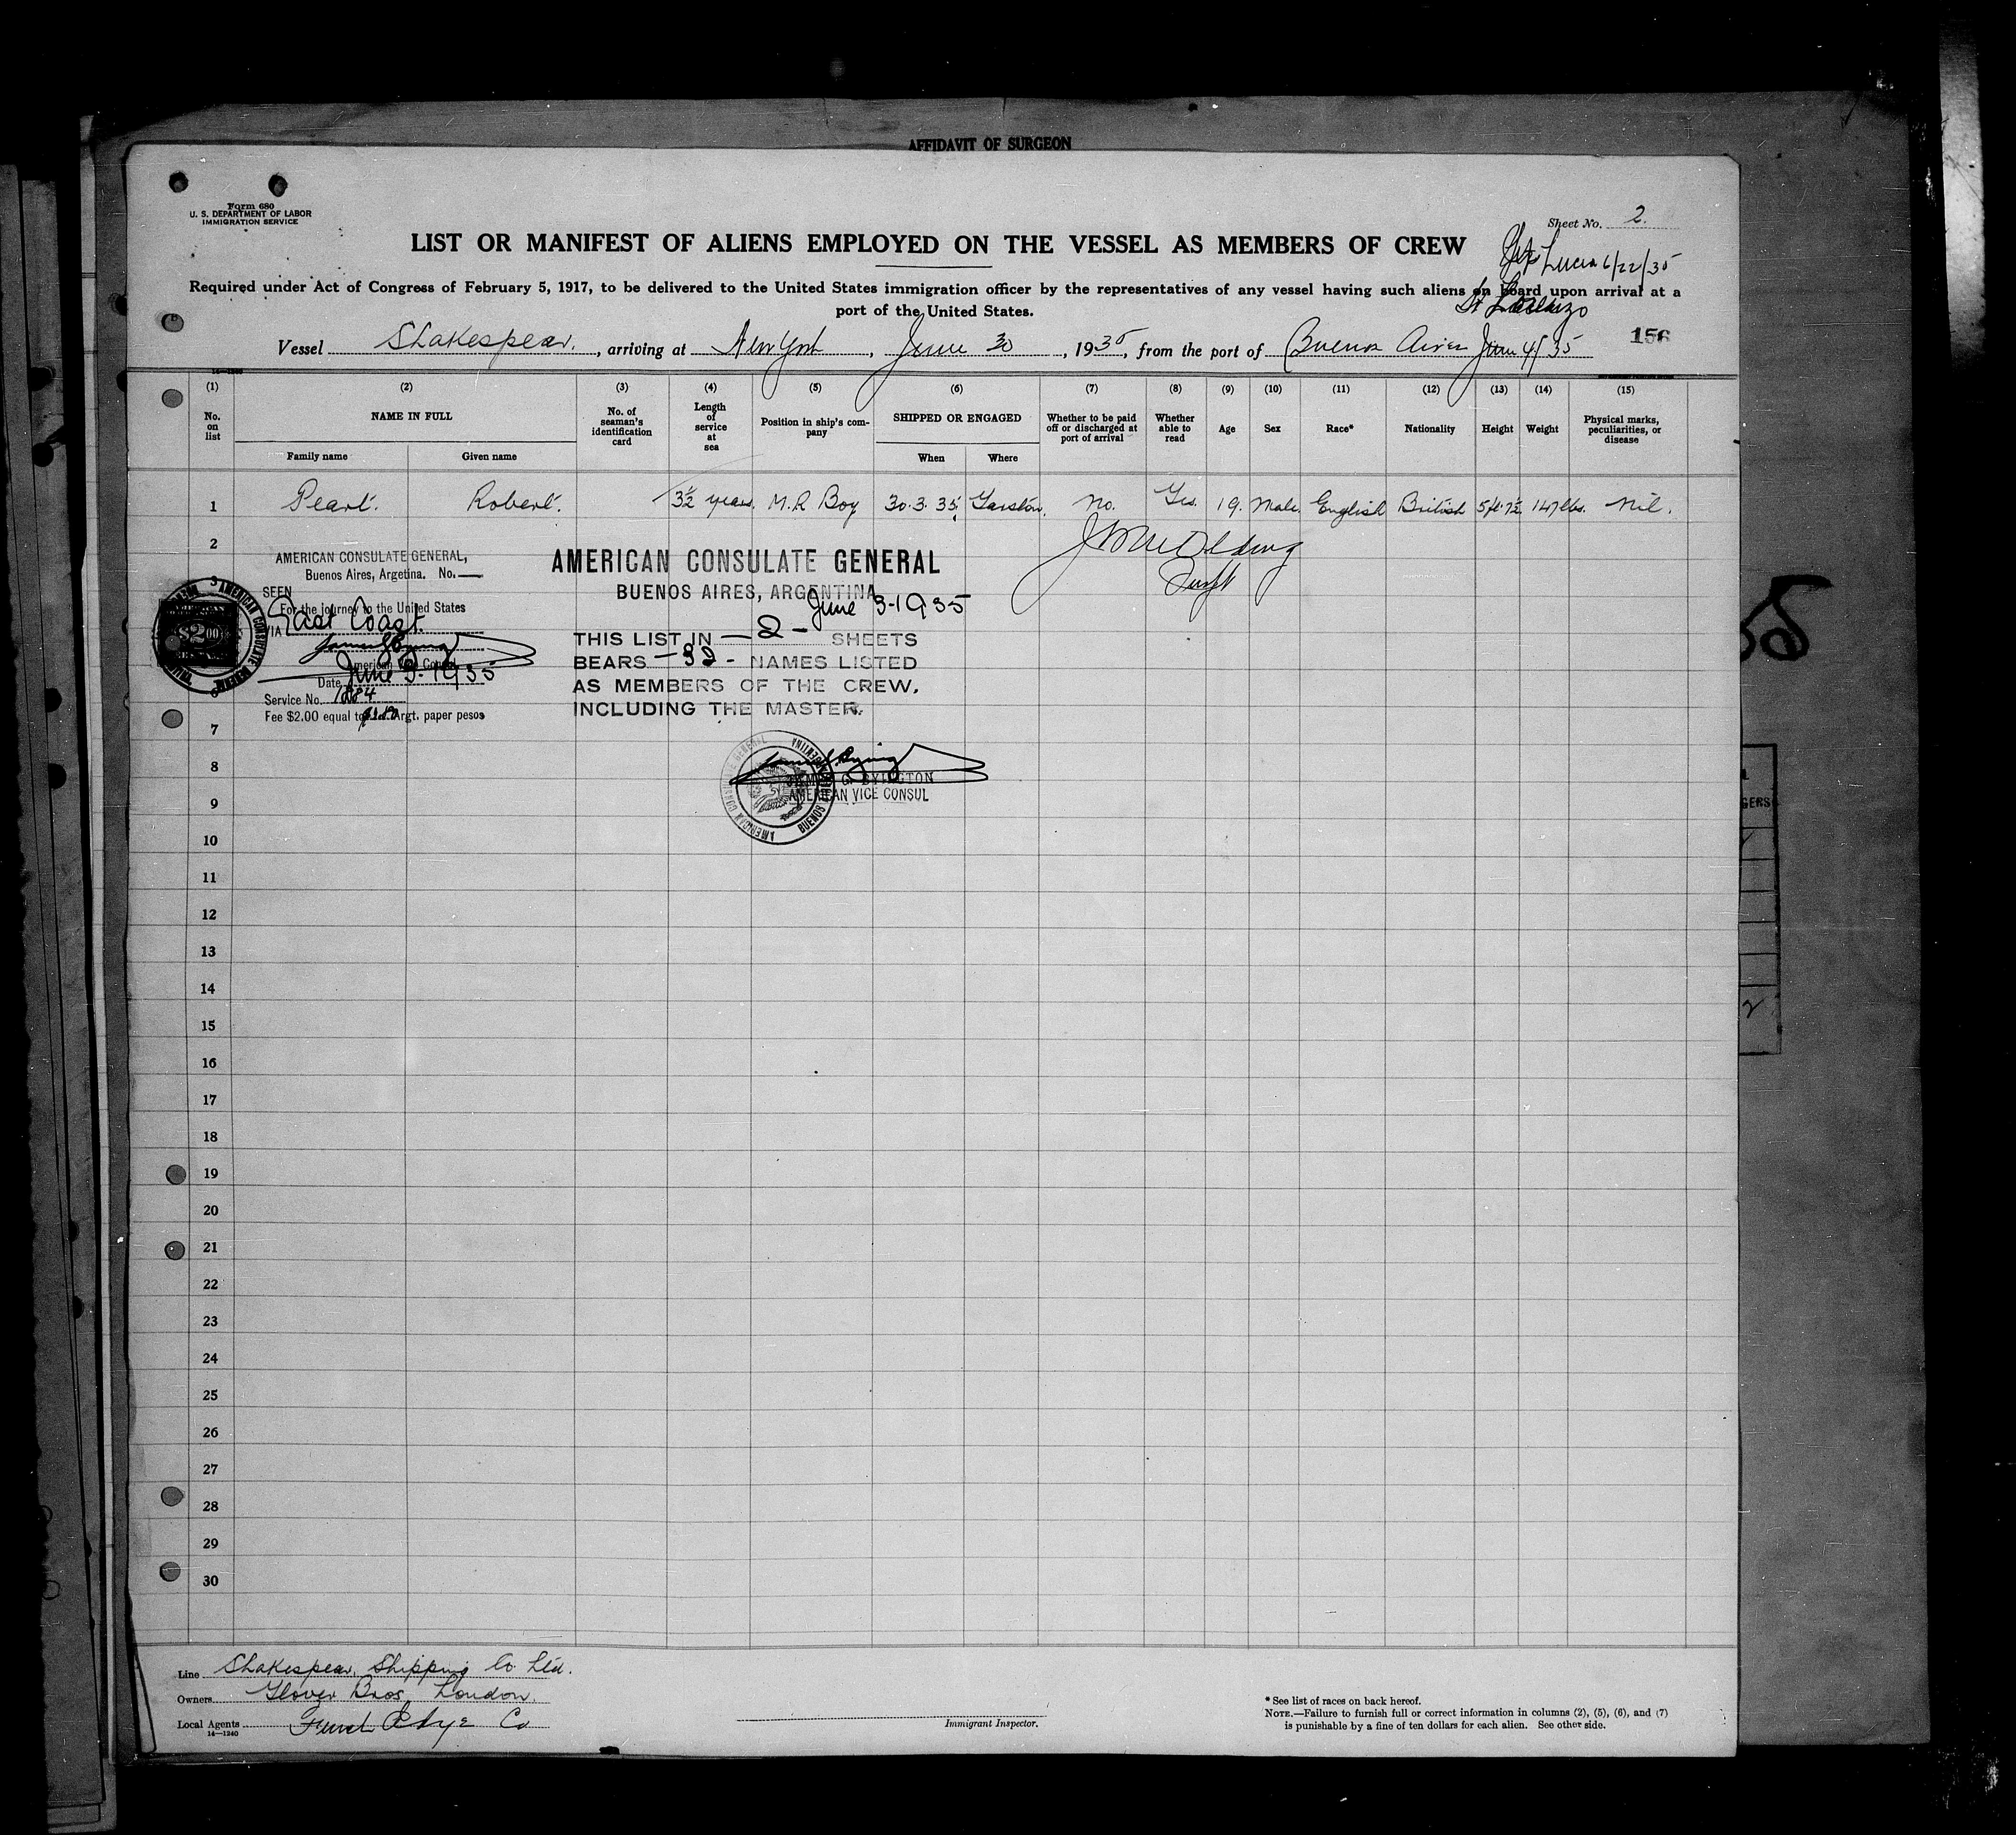 AFFIDAVIT OF SURGEON
Form 680
U. S. DEPARTMENT OF LABOR
IMMIGRATION SERVICE
Sheet No. 2.
LIST OR MANIFEST OF ALIENS EMPLOYED ON THE VESSEL AS MEMBERS OF CREW
Lucia 6/22/35
Required under Act of Congress of February 5, 1917, to be delivered to the United States immigration officer by the representatives of any vessel having such aliens on board upon arrival at a
port of the United States.
St Lorenzo
Vessel Shakespear, arriving at New York, June 30, 1935, from the port of Buenos Aires June 4/35
156
(1) (2) (3) (4) (5) (6) (7) (8) (9) (10) (11) (12) (13) (14) (15)
No. on list NAME IN FULL No. of seaman's identification card Length of service at sea Position in ship's company SHIPPED OR ENGAGED Whether to be paid off or discharged at port of arrival Whether able to read Age Sex Race* Nationality Height Weight Physical marks, peculiarities, or disease
Family name Given name When Where
1 Pearl. Robert. 3½ years. M.R Boy 30.3.35 Garston. No. Yes. 19. Male. English British 5ft.7½ 147 lbs. Nil.
2
AMERICAN CONSULATE GENERAL,
Buenos Aires, Argetina. No.
SEEN
For the journey to the United States
VIA East Coast.
American Vice Consul
Date June 3-1935
Service No. 1884
Fee $2.00 equal to Argt. paper pesos
3
AMERICAN CONSULATE
$2.00
AMERICAN CONSULATE GENERAL
BUENOS AIRES, ARGENTINA
June 3-1935
THIS LIST IN —2— SHEETS
BEARS —32— NAMES LISTED
AS MEMBERS OF THE CREW,
INCLUDING THE MASTER.
JAMES G. BYINGTON
AMERICAN VICE CONSUL
AMERICAN CONSULATE GENERAL BUENOS AIRES ARGENTINA
7
8
9
10
11
12
13
14
15
16
17
18
19
20
21
22
23
24
25
26
27
28
29
30
Line Shakespear Shipping Co Ltd.
Owners Glover Bros. London.
Local Agents Funch Edye Co
14—1240
Immigrant Inspector.
* See list of races on back hereof.
NOTE.—Failure to furnish full or correct information in columns (2), (5), (6), and (7)
is punishable by a fine of ten dollars for each alien. See other side.